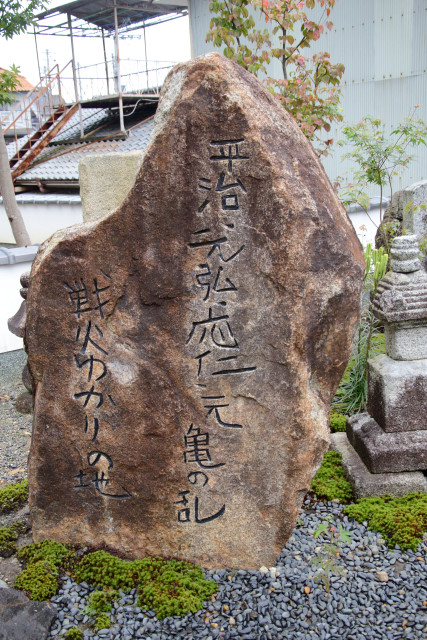 平治元弘応仁元亀の乱
戦火ゆかりの地